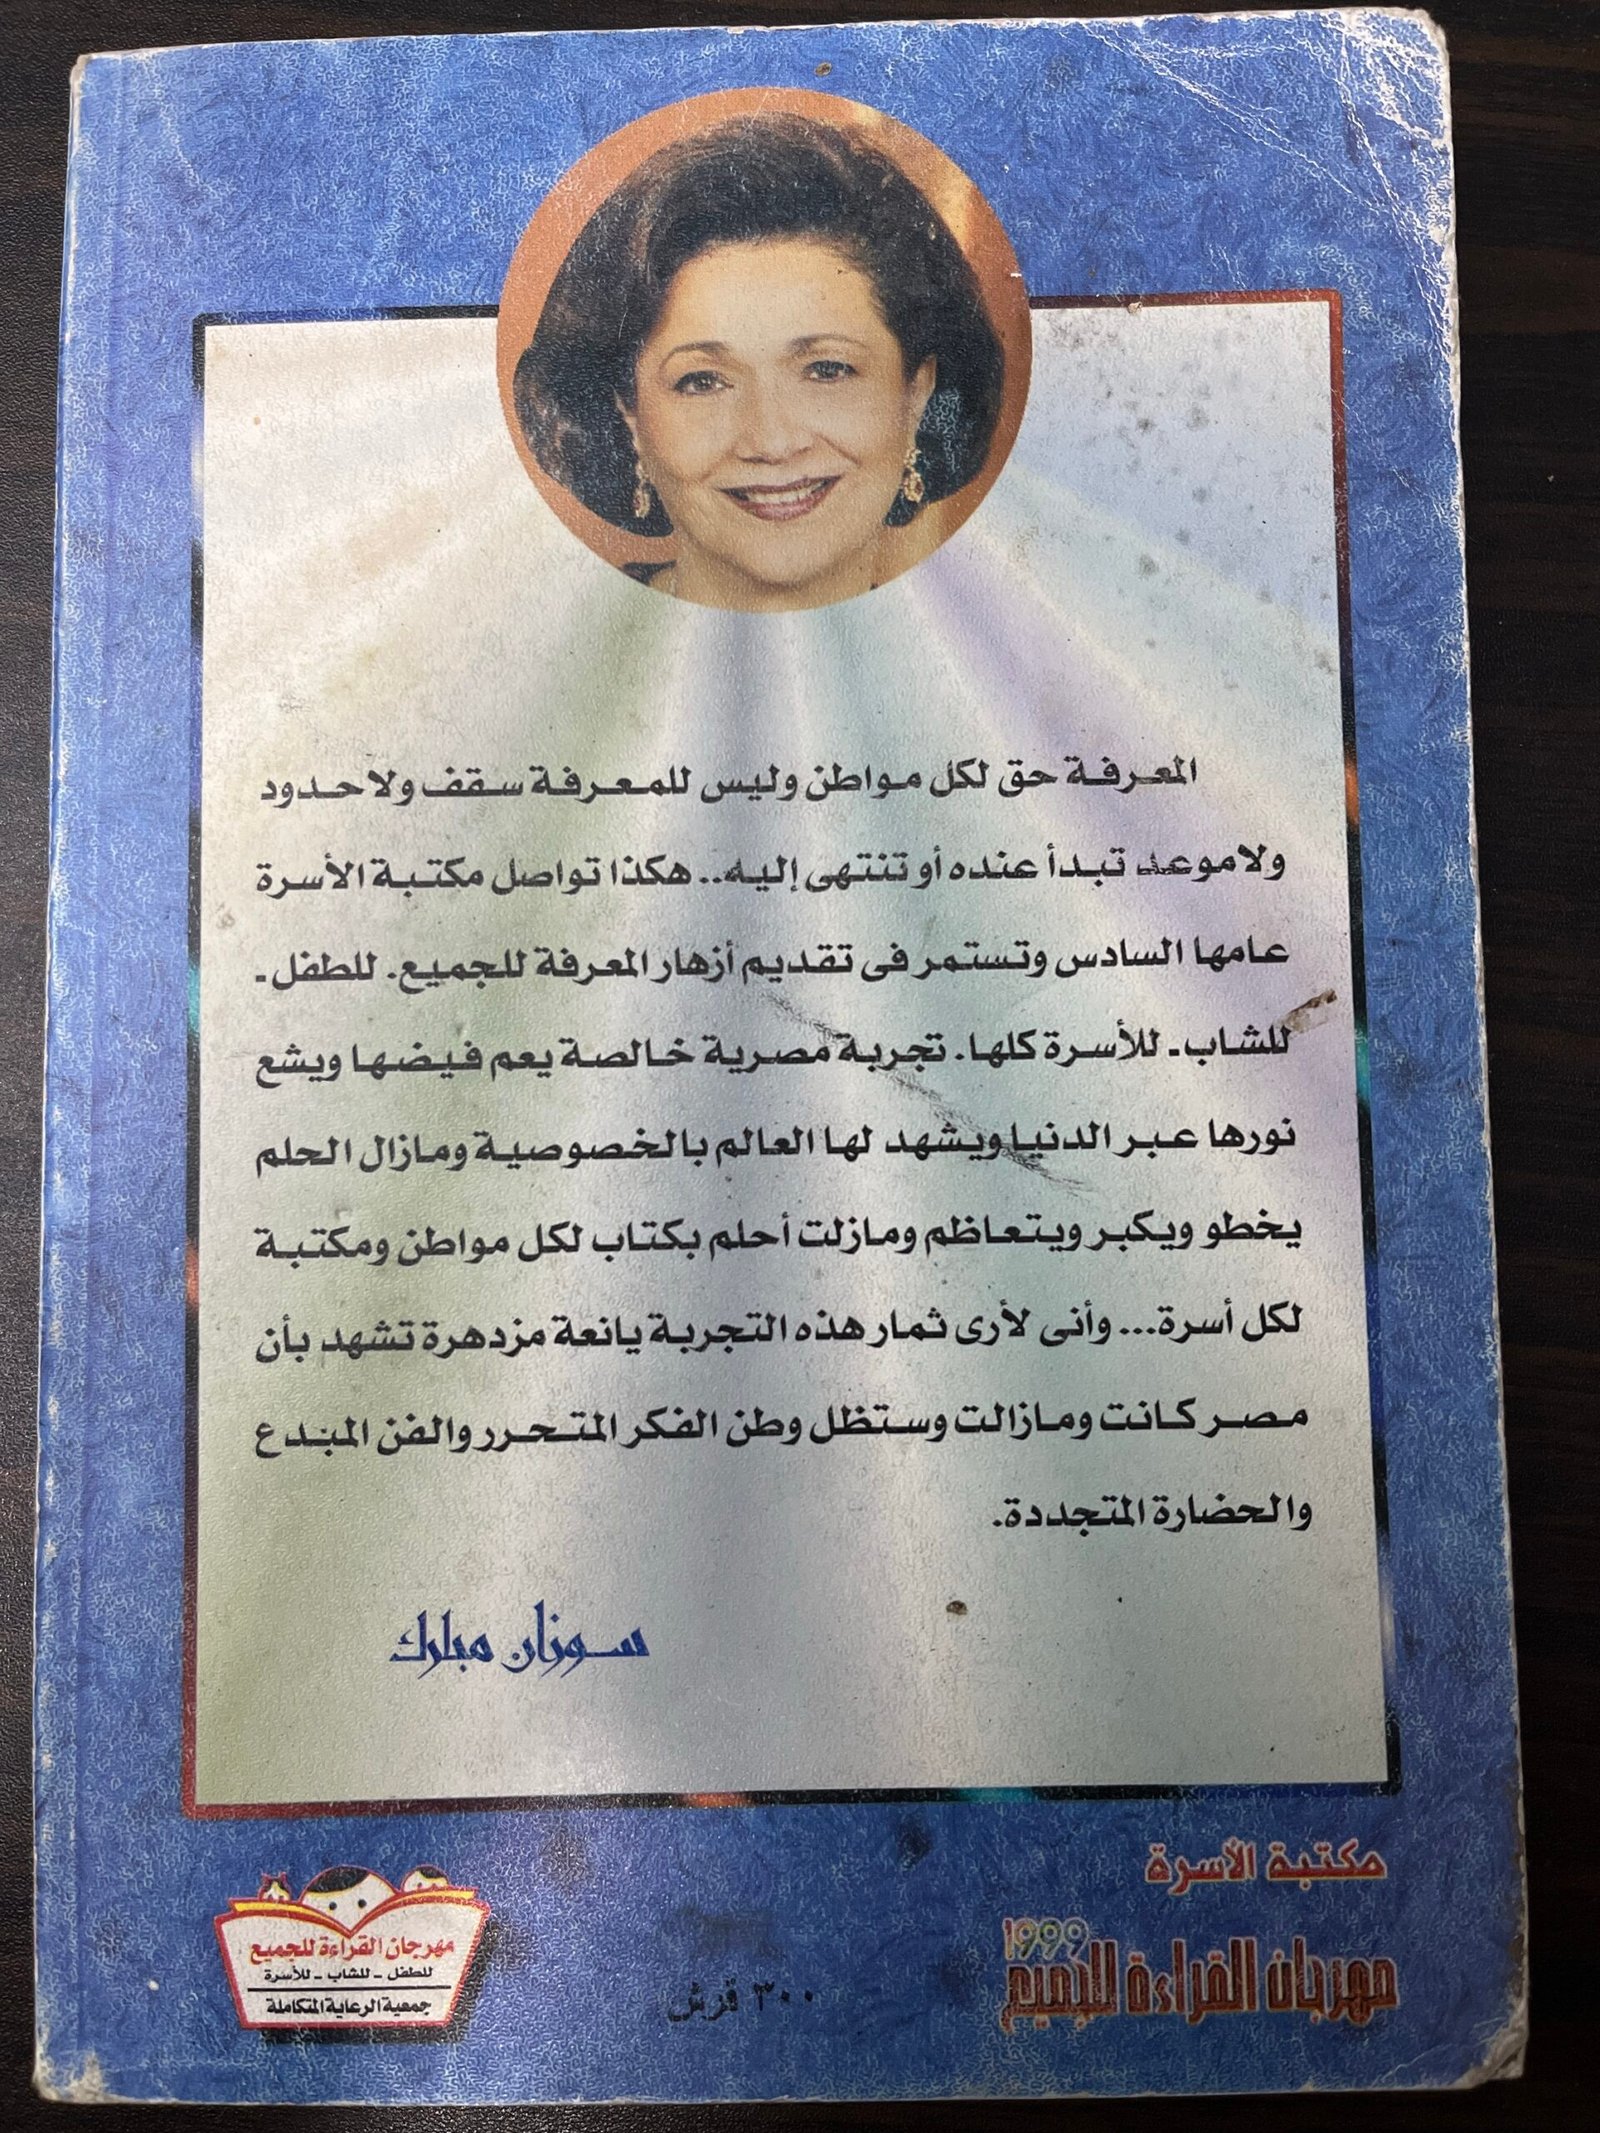 المعرفة حق لكل مواطن وليس للمعرفة سقف ولا حدود
ولا موعد تبدأ عنده أو تنتهى إليه.. هكذا تواصل مكتبة الأسرة
عامها السادس وتستمر فى تقديم أزهار المعرفة للجميع. للطفل ـ
للشاب ـ للأسرة كلها. تجربة مصرية خالصة يعم فيضها ويشع
نورها عبر الدنيا ويشهد لها العالم بالخصوصية ومازال الحلم
يخطو ويكبر ويتعاظم ومازلت أحلم بكتاب لكل مواطن ومكتبة
لكل أسرة... وأنى لأرى ثمار هذه التجربة يانعة مزدهرة تشهد بأن
مصر كانت ومازالت وستظل وطن الفكر المتحرر والفن المبدع
والحضارة المتجددة.
سوزان مبارك
مكتبة الأسرة
1999
مهرجان القراءة للجميع
٣٠٠ قرش
مهرجان القراءة للجميع
للطفل ـ للشاب ـ للأسرة
جمعية الرعاية المتكاملة